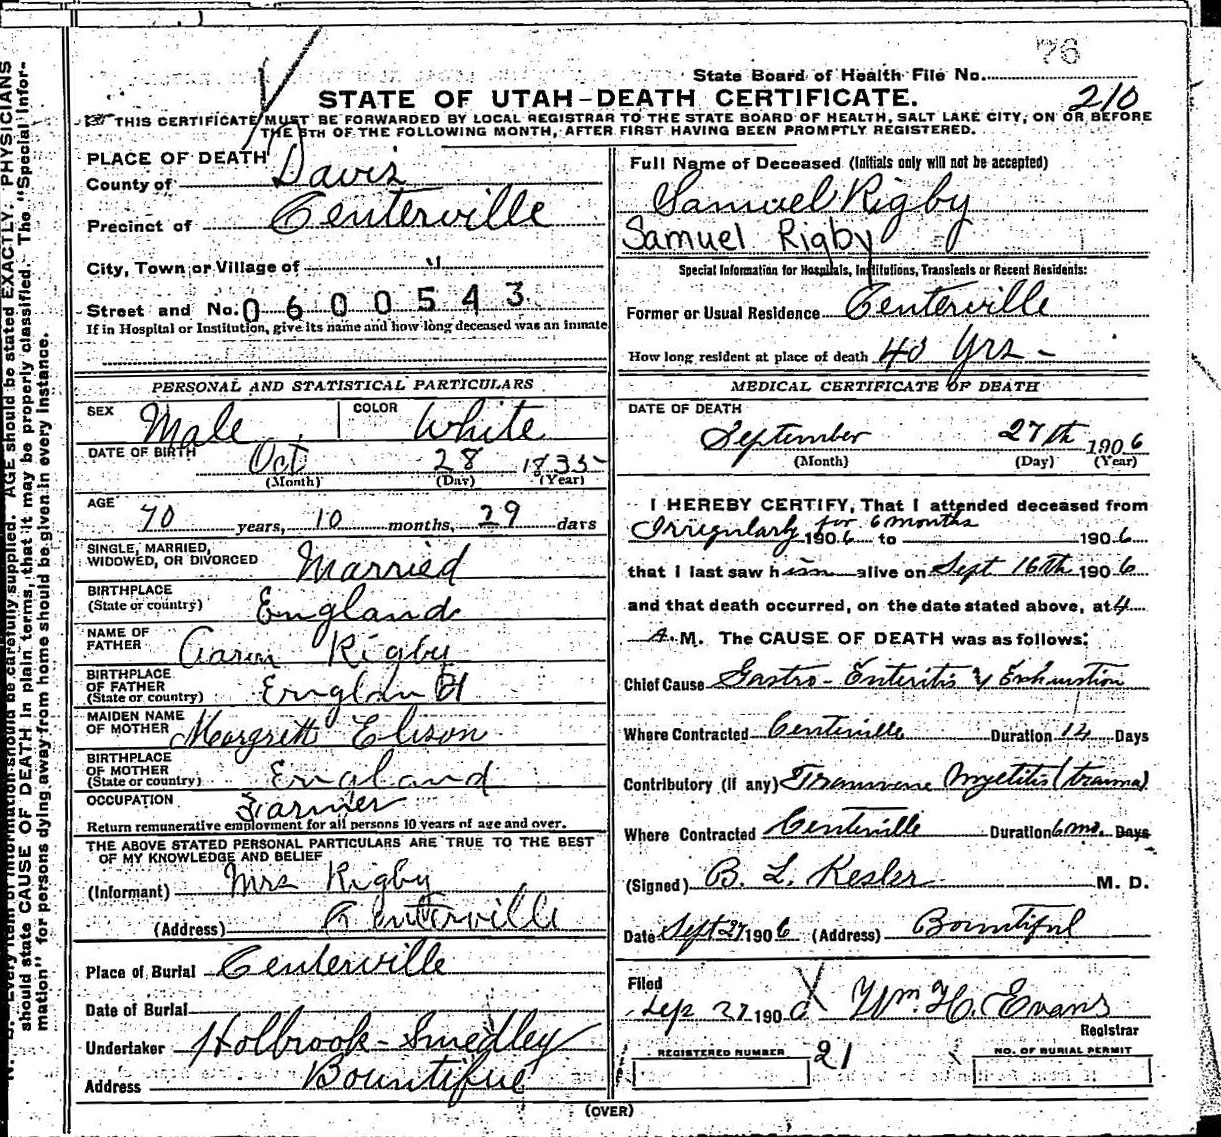 76
State Board of Health File No.
210
STATE OF UTAH-DEATH CERTIFICATE.
THIS CERTIFICATE MUST BE FORWARDED BY LOCAL REGISTRAR TO THE STATE BOARD OF HEALTH, SALT LAKE CITY, ON OR BEFORE
THE 5TH OF THE FOLLOWING MONTH, AFTER FIRST HAVING BEEN PROMPTLY REGISTERED.
PLACE OF DEATH
County of Davis
Precinct of Centerville
City, Town or Village of "
Street and No. 0600543
If in Hospital or Institution, give its name and how long deceased was an inmate
PERSONAL AND STATISTICAL PARTICULARS
SEX Male COLOR White
DATE OF BIRTH Oct 28 1835
(Month) (Day) (Year)
AGE 70 years, 10 months, 29 days
SINGLE, MARRIED,
WIDOWED, OR DIVORCED Married
BIRTHPLACE
(State or country) England
NAME OF
FATHER Aaron Rigby
BIRTHPLACE
OF FATHER
(State or country) England
MAIDEN NAME
OF MOTHER Margrett Elison
BIRTHPLACE
OF MOTHER
(State or country) England
OCCUPATION Farmer
Return remunerative employment for all persons 10 years of age and over.
THE ABOVE STATED PERSONAL PARTICULARS ARE TRUE TO THE BEST
OF MY KNOWLEDGE AND BELIEF
(Informant) Mrs Rigby
(Address) Centerville
Place of Burial Centerville
Date of Burial
Undertaker Holbrook-Smedley
Address Bountiful
Full Name of Deceased (Initials only will not be accepted)
Samuel Rigby
Samuel Rigby
Special Information for Hospitals, Institutions, Transients or Recent Residents:
Former or Usual Residence Centerville
How long resident at place of death 40 yrs-
MEDICAL CERTIFICATE OF DEATH
DATE OF DEATH
September 27th 1906
(Month) (Day) (Year)
I HEREBY CERTIFY, That I attended deceased from
Irregularly for 6 months 1906 to 1906
that I last saw him alive on Sept 16th 1906
and that death occurred, on the date stated above, at 4
A. M. The CAUSE OF DEATH was as follows:
Chief Cause Gastro-Enteritis & Exhaustion
Where Contracted Centerville Duration 12 Days
Contributory (if any) Transverse Myelitis (trauma)
Where Contracted Centerville Duration 6 mo. Days
(Signed) B. L. Kesler M. D.
Date Sept 27 1906 (Address) Bountiful
Filed
Sep 27 1906 Wm. H. Evans
Registrar
REGISTERED NUMBER 21 NO. OF BURIAL PERMIT
(OVER)
N. B. Every item of information should be carefully supplied. AGE should be stated EXACTLY. PHYSICIANS
should state CAUSE OF DEATH in plain terms, that it may be properly classified. The "Special Infor-
mation" for persons dying away from home should be given in every instance.